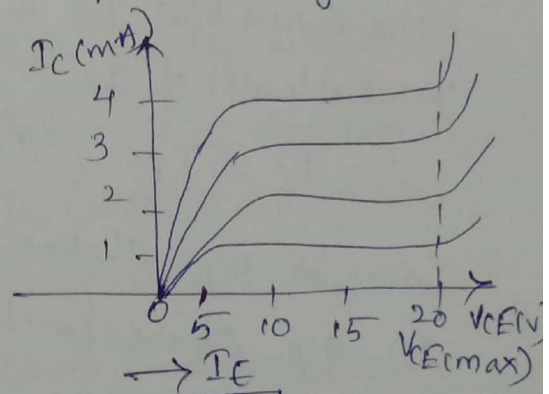 IC (mA)
4
3
2
1
0 5 10 15 20 VCE(V)
VCE(max)
→ IE